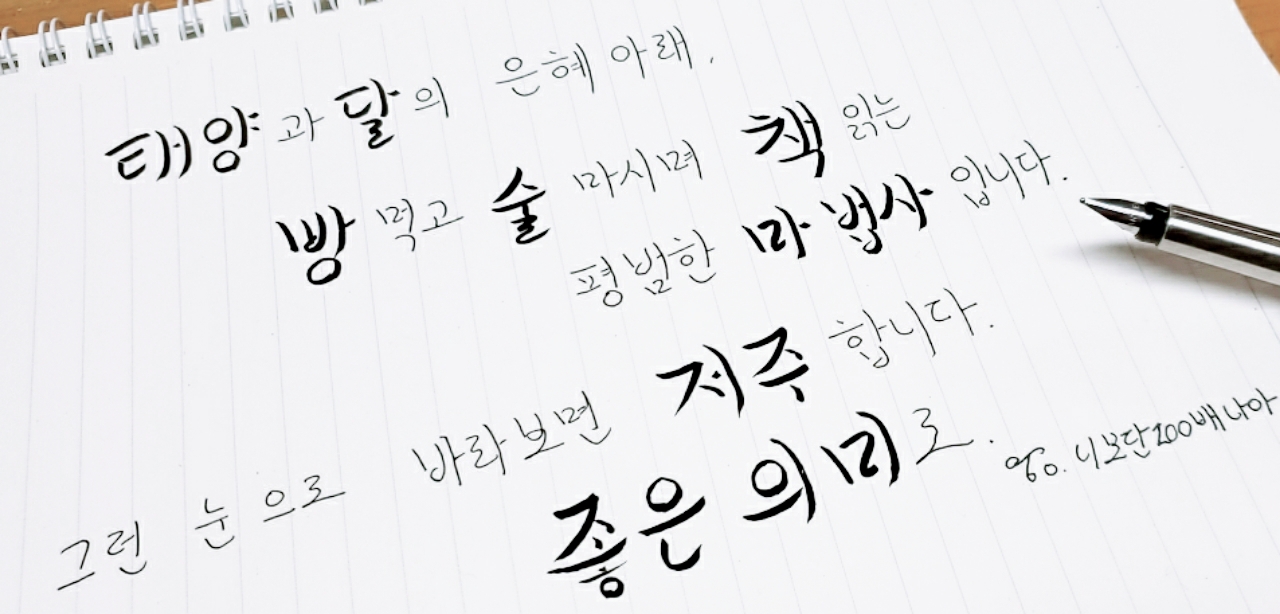 태양과 달의 은혜 아래,
빵 먹고 술 마시며 책 읽는
평범한 마법사입니다.
그런 눈으로 바라보면 저주합니다.
좋은 의미로.
니보단200배나아